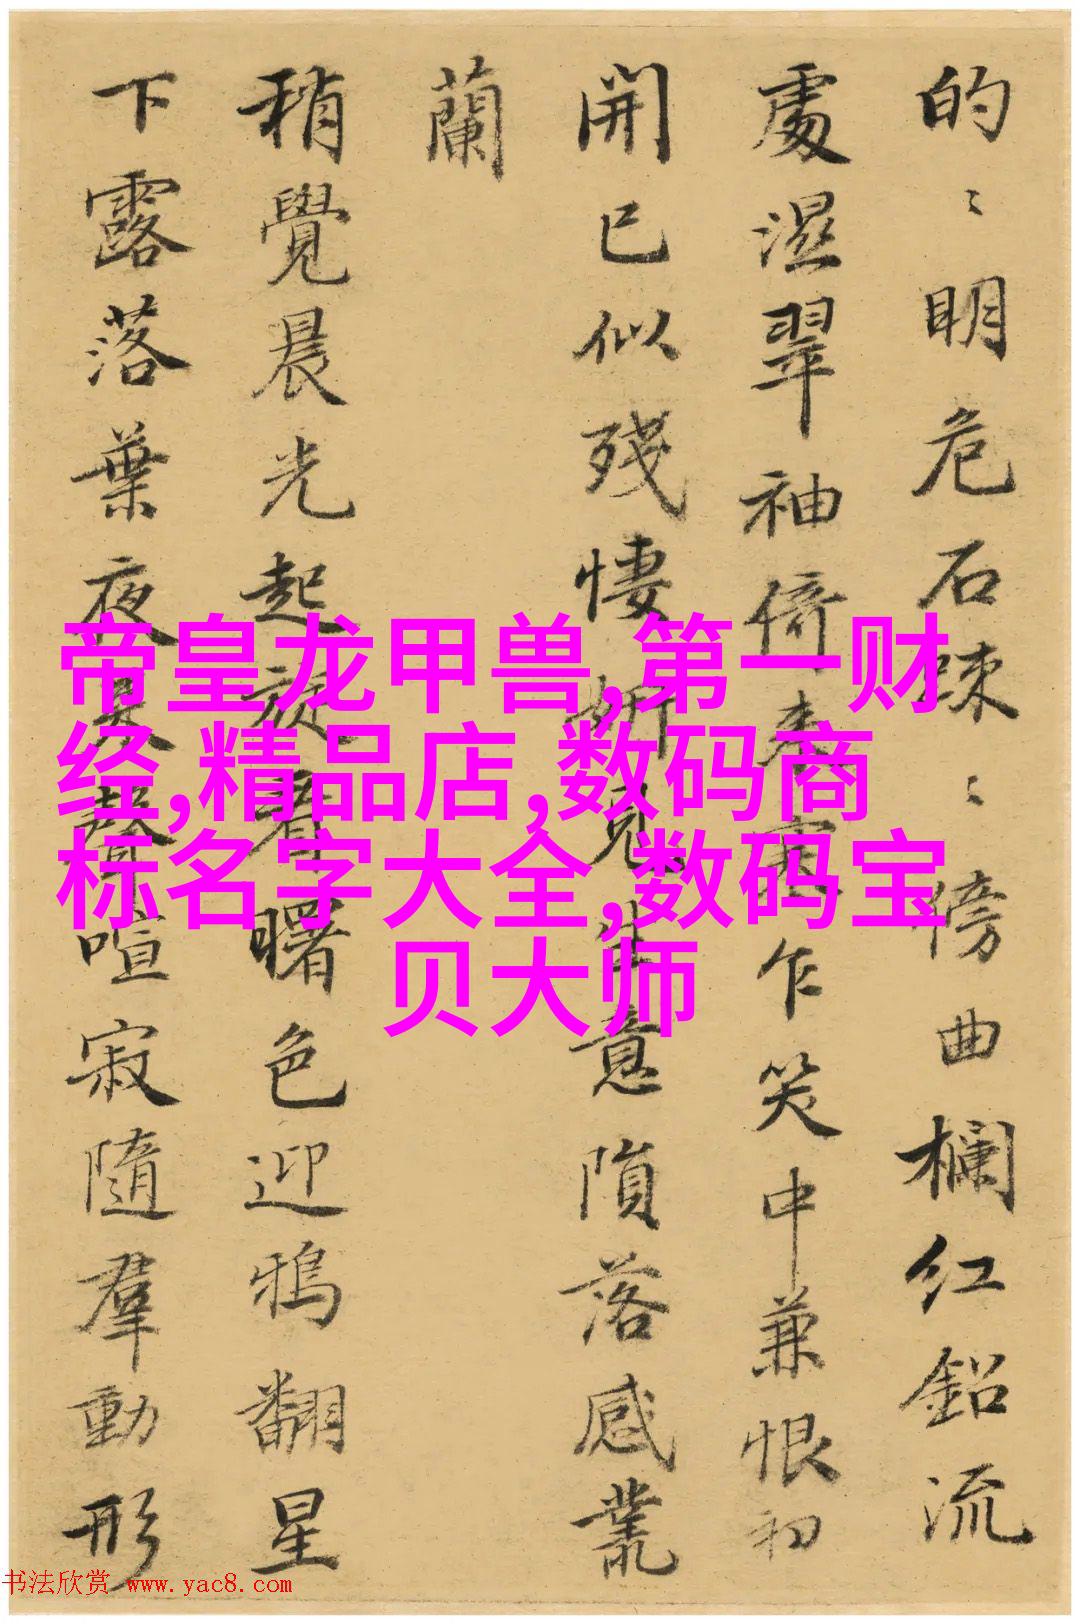 的〻明危石疎〻傍曲欄红鉛流
處濕翠袖倚春寒乍笑中兼恨初
開已似殘悽斷覓生意隕落感叢
蘭
稍覺晨光起旋看曙色迎鴉翻星
下露落葉夜聲喧寂隨羣動形
帝皇龙甲兽,第一财
经,精品店,数码商
标名字大全,数码宝
贝大师
书法欣赏 www.yac8.com